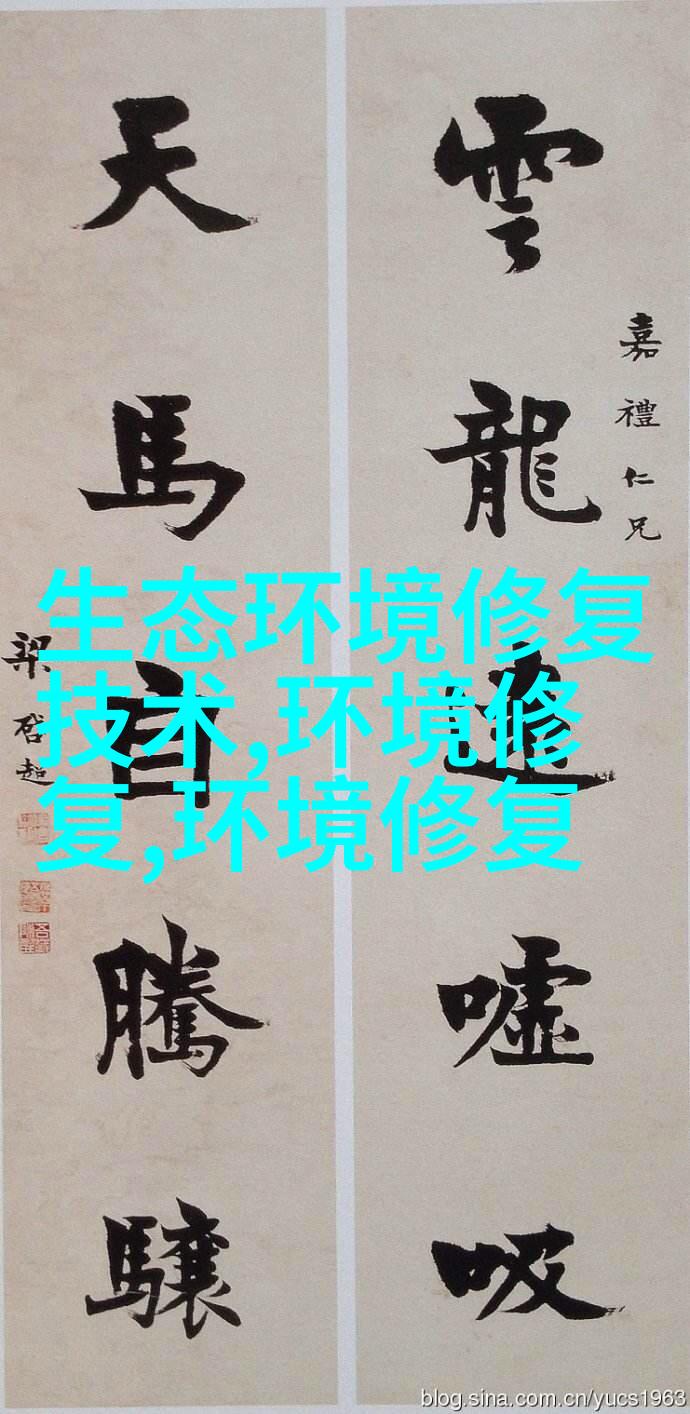 雲龍噓吸
嘉禮仁兄
天馬自騰驤
梁啓超
生态环境修复
技术,环境修
复,环境修复
blog.sina.com.cn/yucs1963